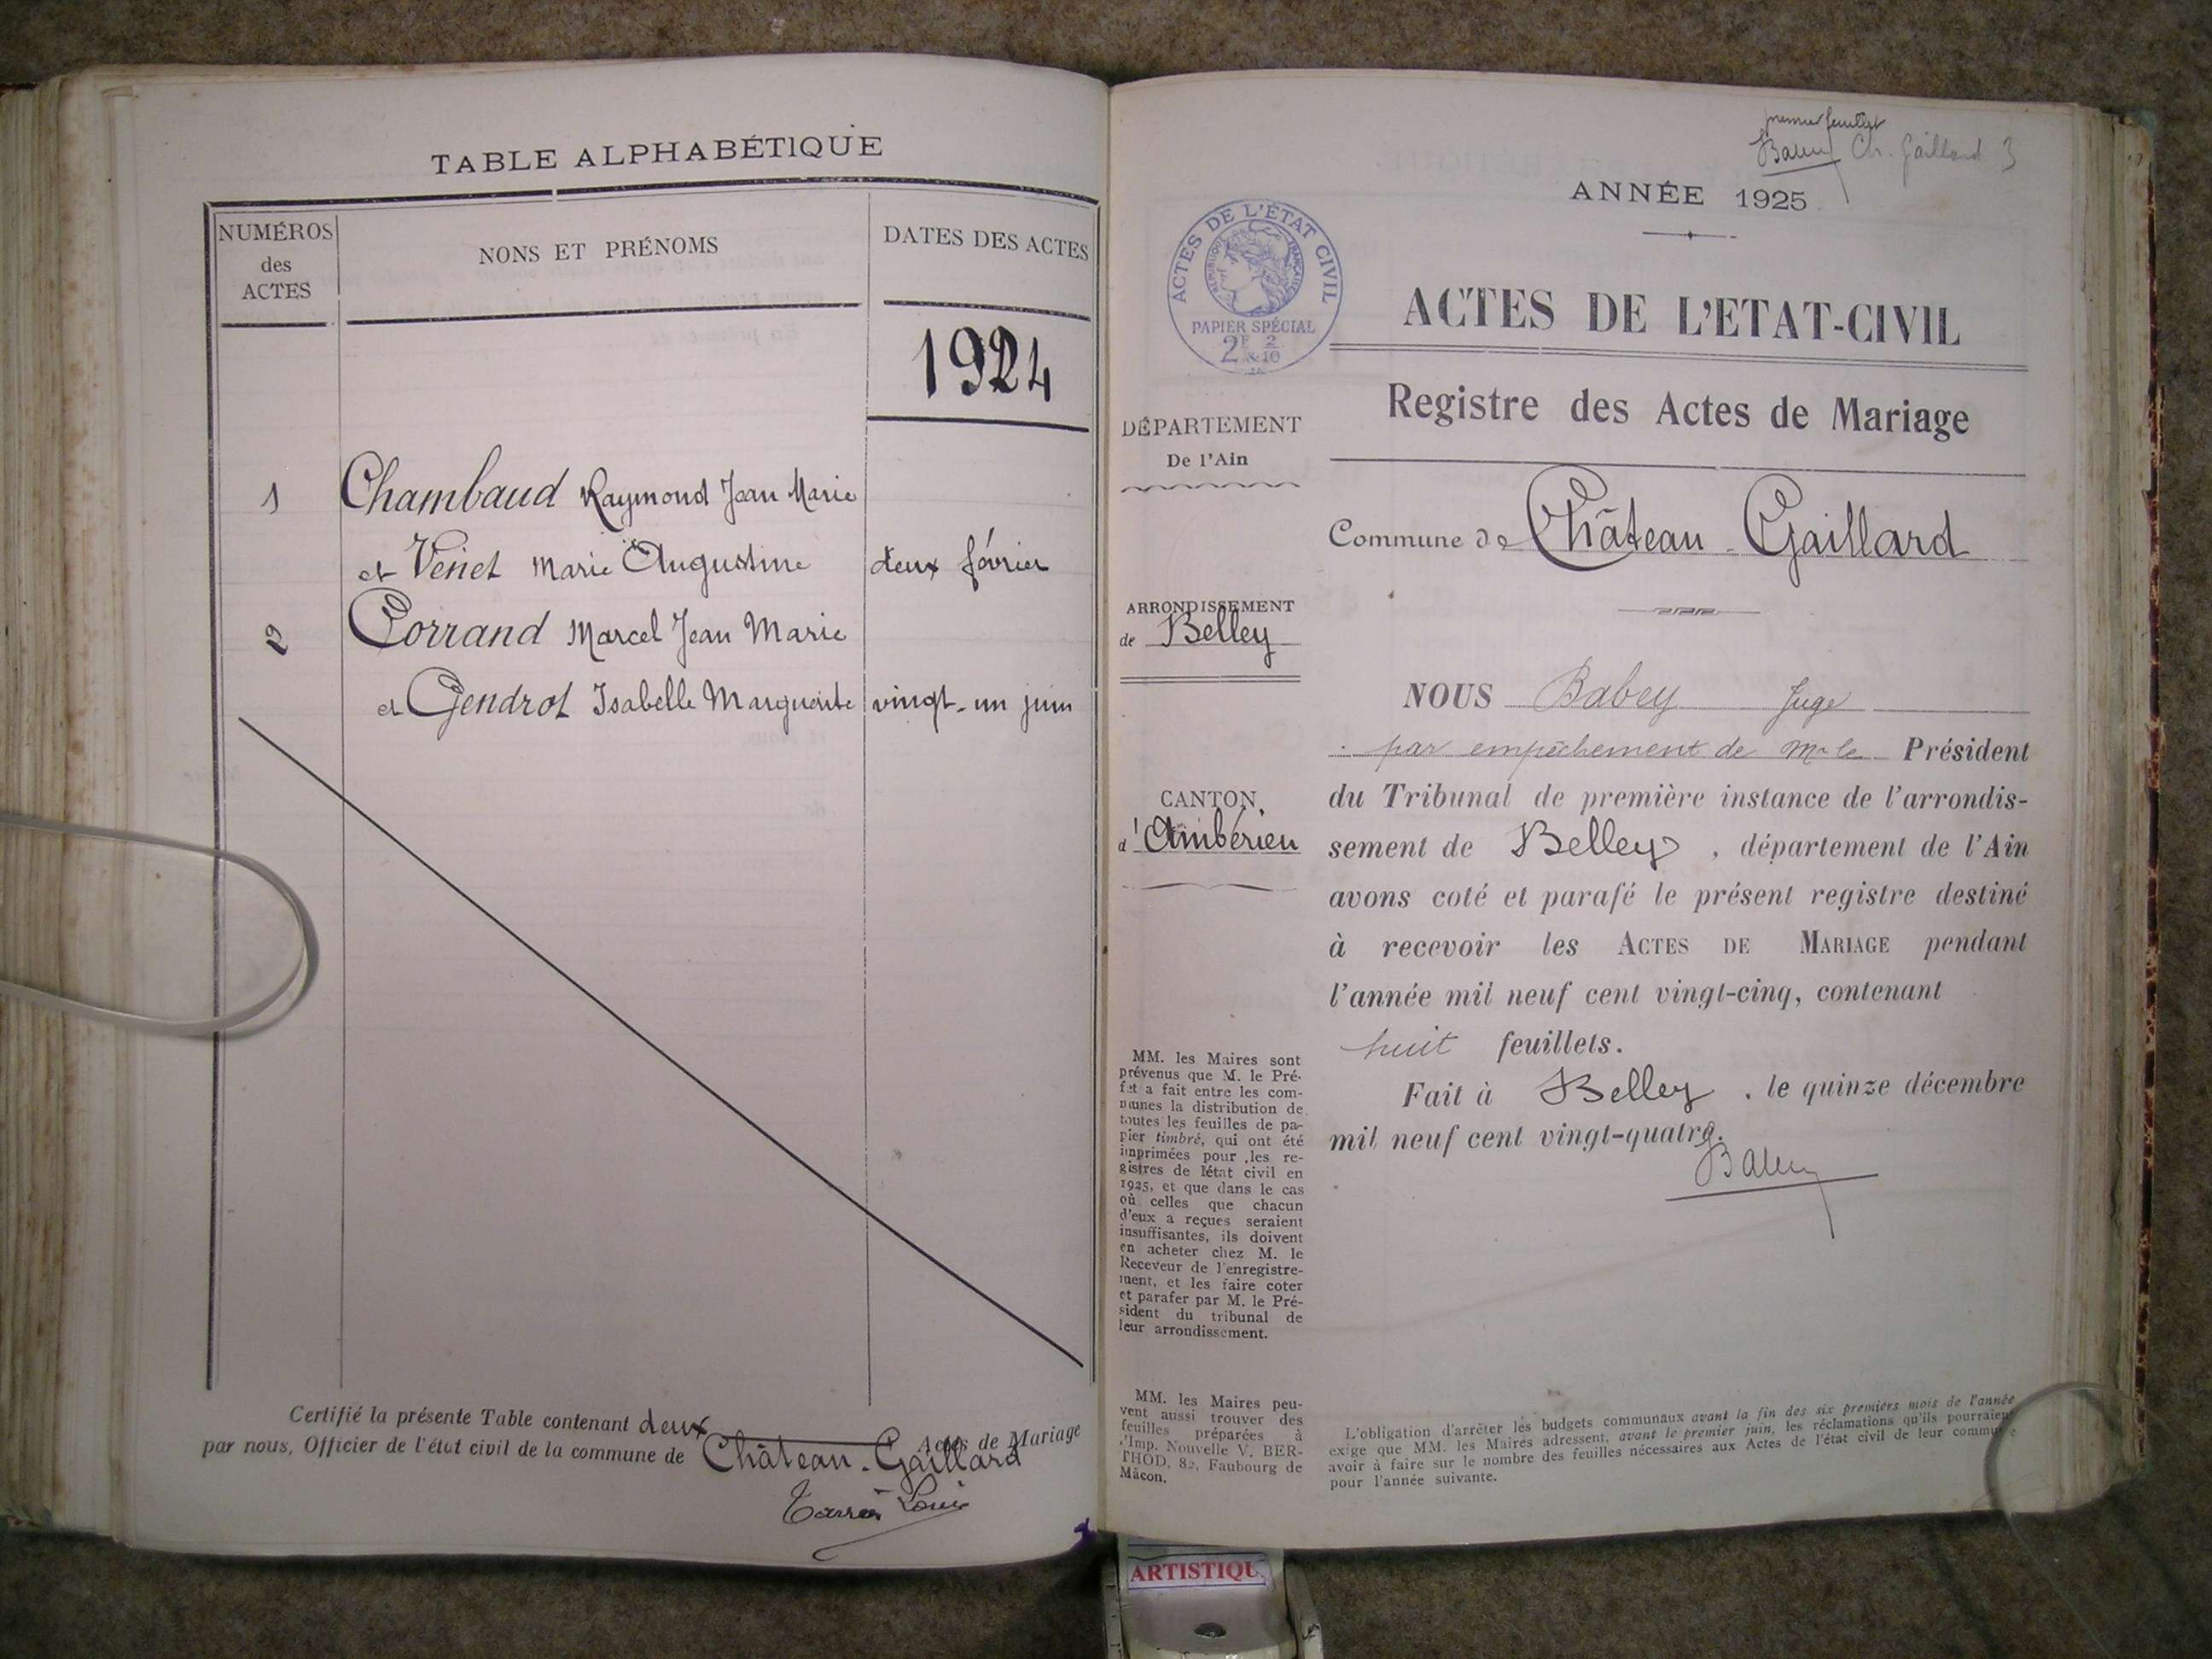 TABLE ALPHABÉTIQUE
NUMÉROS
des
ACTES
NONS ET PRÉNOMS
DATES DES ACTES
1924
1 Chambaud Raymond Jean Marie
et Venet Marie Augustine deux février
2 Corrand Marcel Jean Marie
et Gendrot Isabelle Marguerite vingt-un juin
Certifié la présente Table contenant deux Actes de Mariage
par nous, Officier de l'état civil de la commune de Château-Gaillard
Louis
premier feuillet
Babey Ch. Gaillard 3
ANNÉE 1925
ACTES DE L'ÉTAT CIVIL
RÉPUBLIQUE FRANÇAISE
PAPIER SPÉCIAL
2F 2
& 10
ACTES DE L'ETAT-CIVIL
Registre des Actes de Mariage
DÉPARTEMENT
De l'Ain
Commune de Château-Gaillard
ARRONDISSEMENT
de Belley
CANTON
d'Ambérieu
MM. les Maires sont
prévenus que M. le Pré-
fet a fait entre les com-
munes la distribution de
toutes les feuilles de pa-
pier timbré, qui ont été
imprimées pour les re-
gistres de létat civil en
1925, et que dans le cas
où celles que chacun
d'eux a reçues seraient
insuffisantes, ils doivent
en acheter chez M. le
Receveur de l'enregistre-
ment, et les faire coter
et parafer par M. le Pré-
sident du tribunal de
leur arrondissement.
MM. les Maires peu-
vent aussi trouver des
feuilles préparées à
l'Imp. Nouvelle V. BER-
THOD, 82, Faubourg de
Mâcon.
NOUS Babey Juge
par empêchement de Mr le Président
du Tribunal de première instance de l'arrondis-
sement de Belley, département de l'Ain
avons coté et parafé le présent registre destiné
à recevoir les ACTES DE MARIAGE pendant
l'année mil neuf cent vingt-cinq, contenant
huit feuillets.
Fait à Belley, le quinze décembre
mil neuf cent vingt-quatre.
Babey
L'obligation d'arrêter les budgets communaux avant la fin des six premiers mois de l'année
exige que MM. les Maires adressent, avant le premier juin, les réclamations qu'ils pourraient
avoir à faire sur le nombre des feuilles nécessaires aux Actes de l'état civil de leur commune
pour l'année suivante.
ARTISTIQU